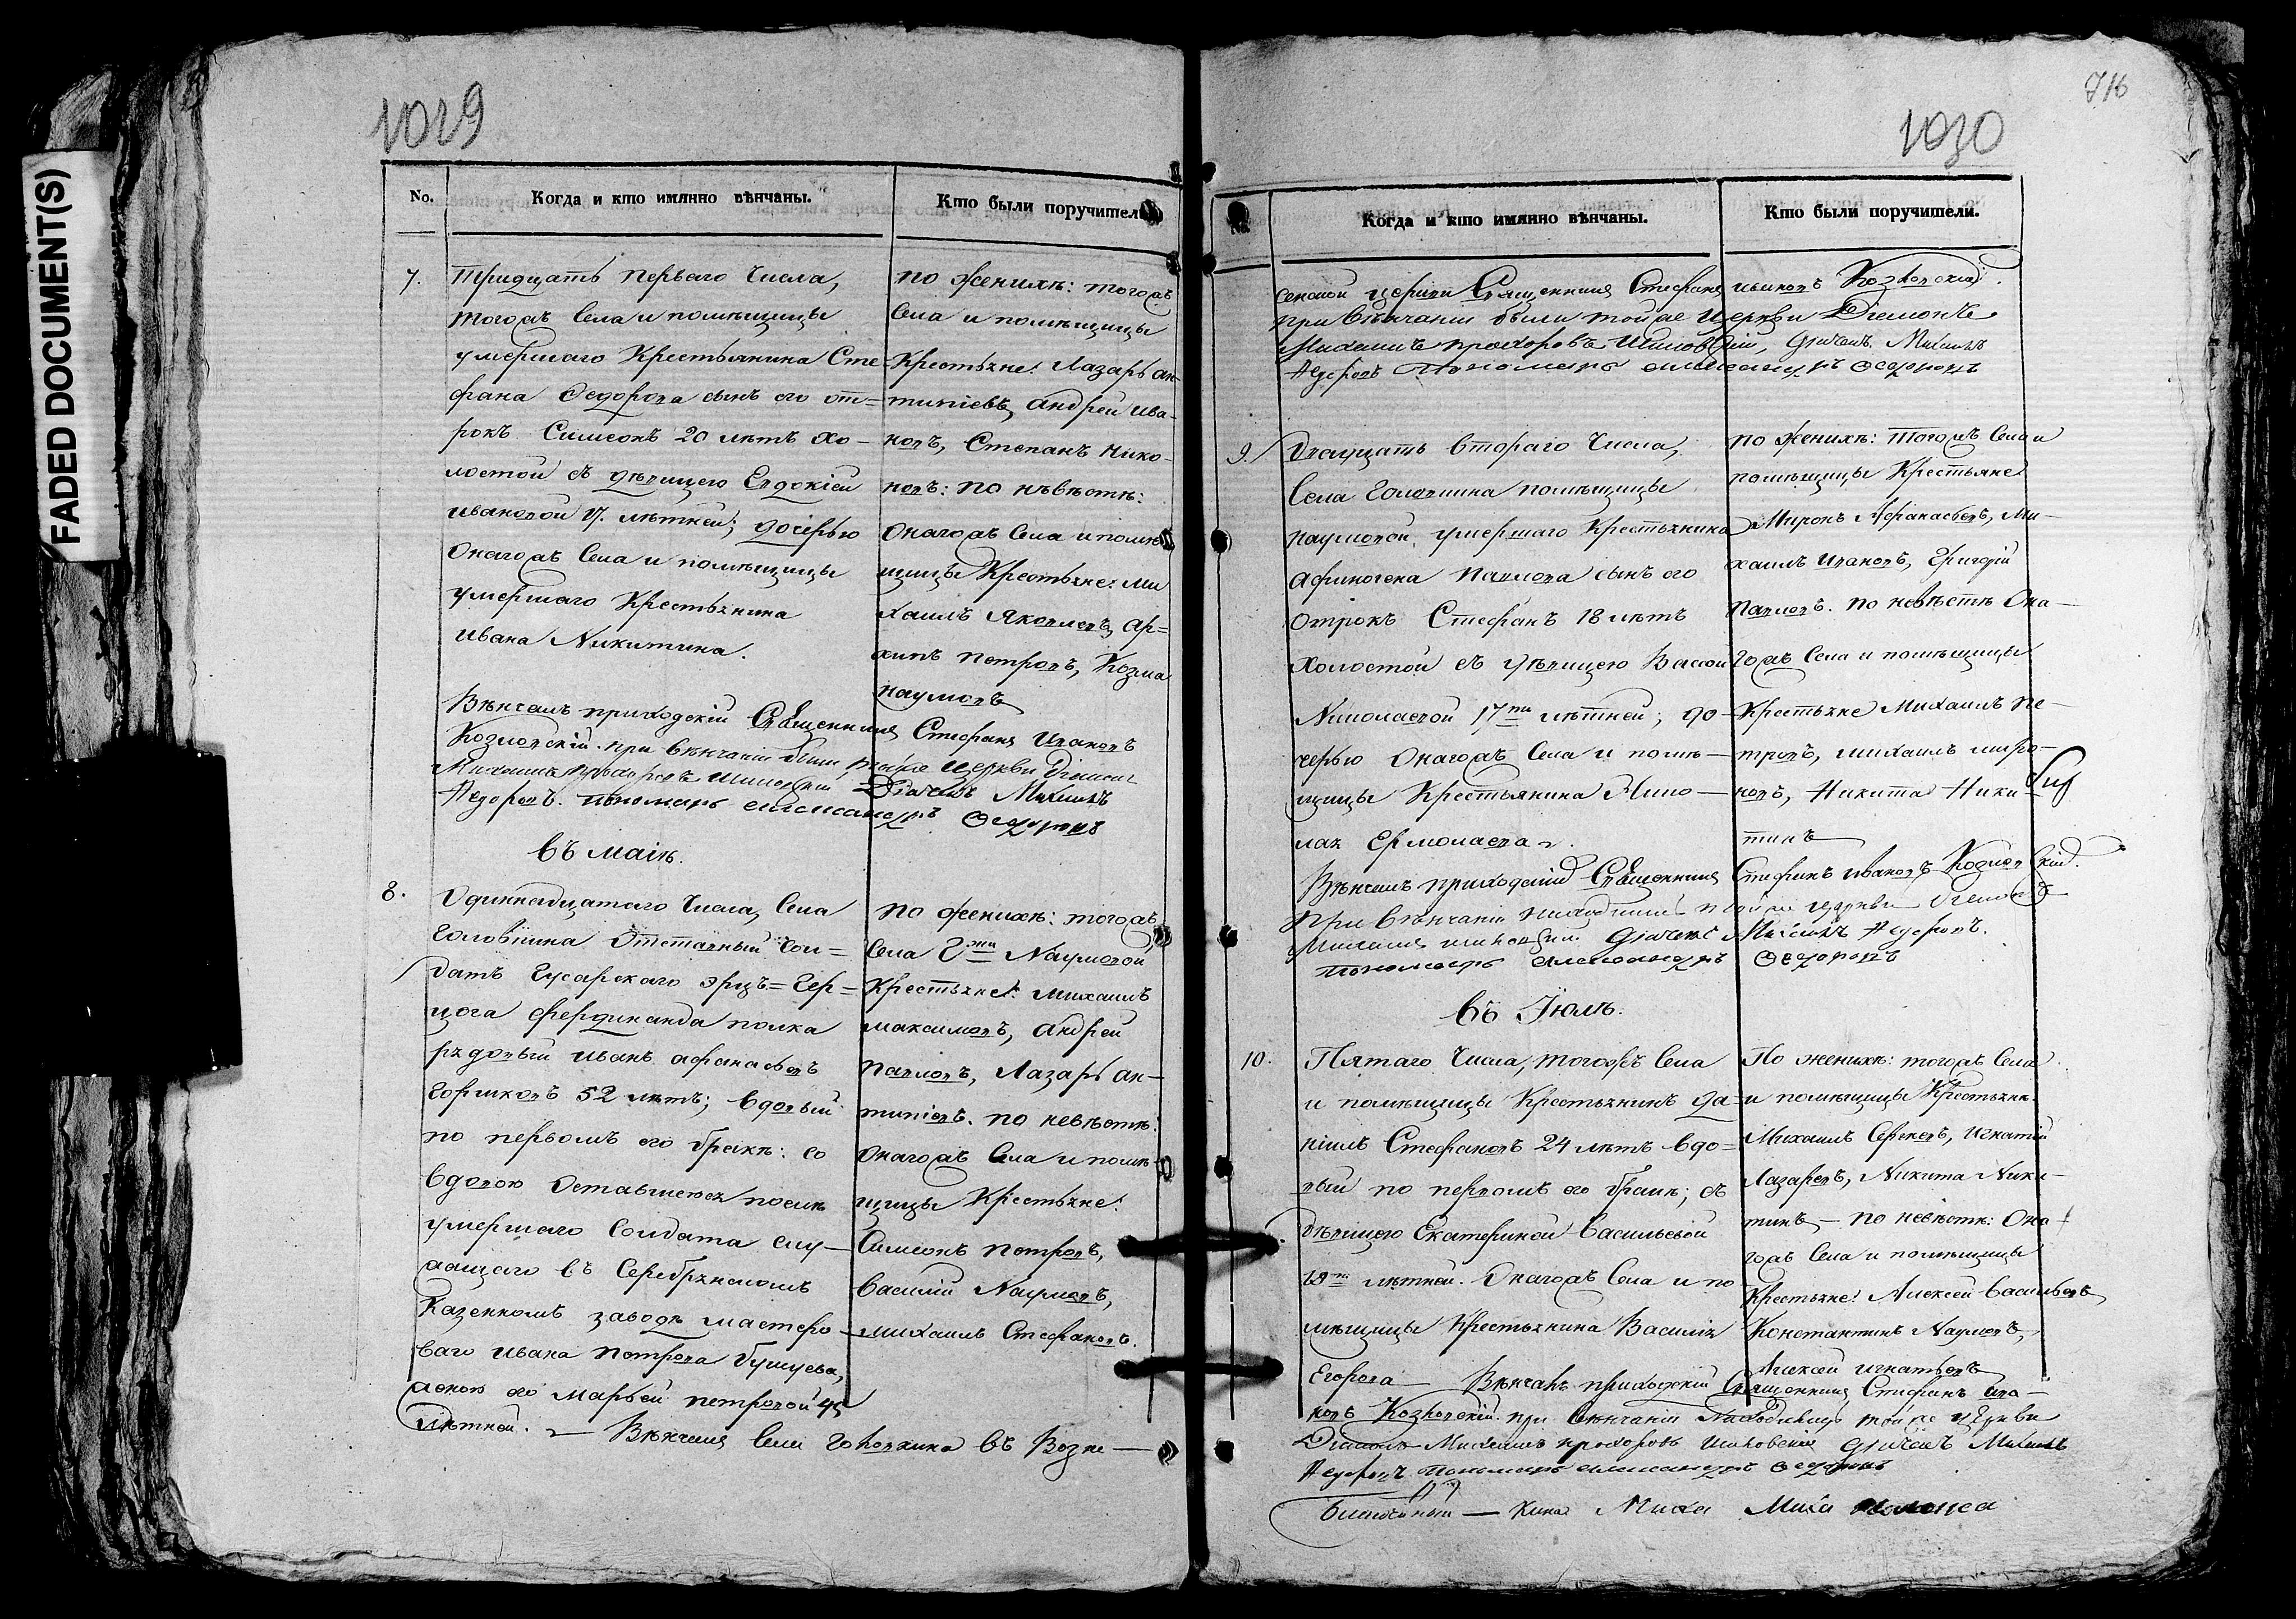 FADED DOCUMENT(S)
1029
No.
Когда и кто имянно вѣнчаны.
Кто были поручители
7.
Тридцать перваго Числа,
тогожъ Села и помѣщицы
умершаго Крестьянина Сте
фана Федорова сынъ его от=
рокъ Симеонъ 20 лѣтъ хо-
лостой съ дѣвицею Евдокіею
ивановой 17. лѣтней; дочерью
Онагожъ Села и помѣщицы
умершаго Крестьянина
ивана Никитина.
по женихѣ: тогожъ
Села и помѣщицы
Крестьяне: Лазарь ан-
типіевъ, андрей ива-
новъ, Степанъ Нико-
новъ: по нѣвѣстѣ:
Онагожъ Села и помѣ
щицы Крестьяне: Ми
хаилъ Яковлевъ, ар=
хипъ Петровъ, Козма
наумовъ
Вѣнчалъ приходскій Священникъ Стефанъ Ивановъ
Козловскій. при вѣнчаніи были тойже Церкви Діаконъ
Михаилъ Прохоровъ Шиловскій Діачекъ Михаилъ
Федоровъ. пономарь александръ Федоровъ
въ маіѣ.
8.
Одиннадцатаго Числа, Села
Головіщина Отставный Сол=
датъ Гусарскаго эрцъ=Гер=
цога фердинанда полка
рядовый иванъ афанасьевъ
Горшковъ 52 лѣтъ; вдовый
по первомъ его бракѣ: со
вдовою Оставшеюся послѣ
умершаго Солдата слу-
жащаго въ Серебрянскомъ
Казенномъ заводѣ мастеро-
ваго ивана Петрова
женою его Марьей петровой 45
лѣтней. Вѣнчаны Села Головкина въ Возне-
по женихѣ: тогожъ
Села Г жи Наумовой
Крестьяне: михаилъ
максимовъ, андрей
Павловъ, Лазарь ан-
типіевъ. по невѣстѣ:
Онагожъ Села и помѣ-
щицы Крестьяне:
Симеонъ Петровъ,
Василій Наумовъ,
михаилъ Стефановъ.
716
1030
No.
Когда и кто имянно вѣнчаны.
Кто были поручители.
сенской церкви Священникъ Стефанъ ивановъ Козловскій.
при вѣнчаніи были тойже Церкви Діаконъ
Михаилъ прохоровъ Шиловскій, Діачекъ Михаилъ
Федоровъ Пономарь александръ Федоровъ
9.
Двадцать втораго Числа,
Села Головщина помѣщицы
наумовой, умершаго Крестьянина
афиногена Павлова сынъ его
Отрокъ Стефанъ 18 лѣтъ
Холостой съ дѣвицею Вассой
Николаевой 17 ти лѣтней; до-
черью Онагожъ Села и помѣ-
щицы Крестьянина Нико-
лая Ермолаева.
по женихѣ: Тогожъ Села и
помѣщицы Крестьяне
Миронъ Афанасьевъ, Ми-
хаилъ Ивановъ, Григорій
Павловъ. по невѣстѣ Она-
гожъ Села и помѣщицы
Крестьяне Михаилъ Пе-
тровъ, михаилъ миро-
новъ, Никита Ники-
тинъ
Вѣнчалъ приходскій Священникъ Стефанъ ивановъ Козловскій.
При вѣнчаніи находились тойже церкви Діаконъ
Михаилъ Шиловскій. Діачекъ Михаилъ Федоровъ.
пономарь александръ Федоровъ
въ Іюлѣ.
10.
Пятаго Числа, тогожъ Села
и помѣщицы Крестьянинъ да-
ніилъ Стефановъ 24 лѣтъ вдо=
вый по первомъ его бракѣ; съ
дѣвицею Екатериной Васильевой
лѣтней. Онагожъ Села и по
мѣщицы Крестьянина Василія
Егорова
По женихѣ: тогожъ Села
и помѣщицы Крестьяне.
Михаилъ Сергеевъ, Игнатій
Лазаревъ, Никита Ники-
тинъ, - по невѣстѣ: Она-
гожъ Села и помѣщицы
Крестьяне: Алексей Васильевъ
Константинъ Наумовъ,
Алексей игнатьевъ
Вѣнчалъ приходскій Священникъ Стефанъ ива-
новъ Козловскій. при вѣнчаніи Находились тойже Церкви
Діаконъ Михаилъ прохоровъ Шиловскій дьячекъ Михаилъ
Федоровъ Пономарь александръ Федоровъ